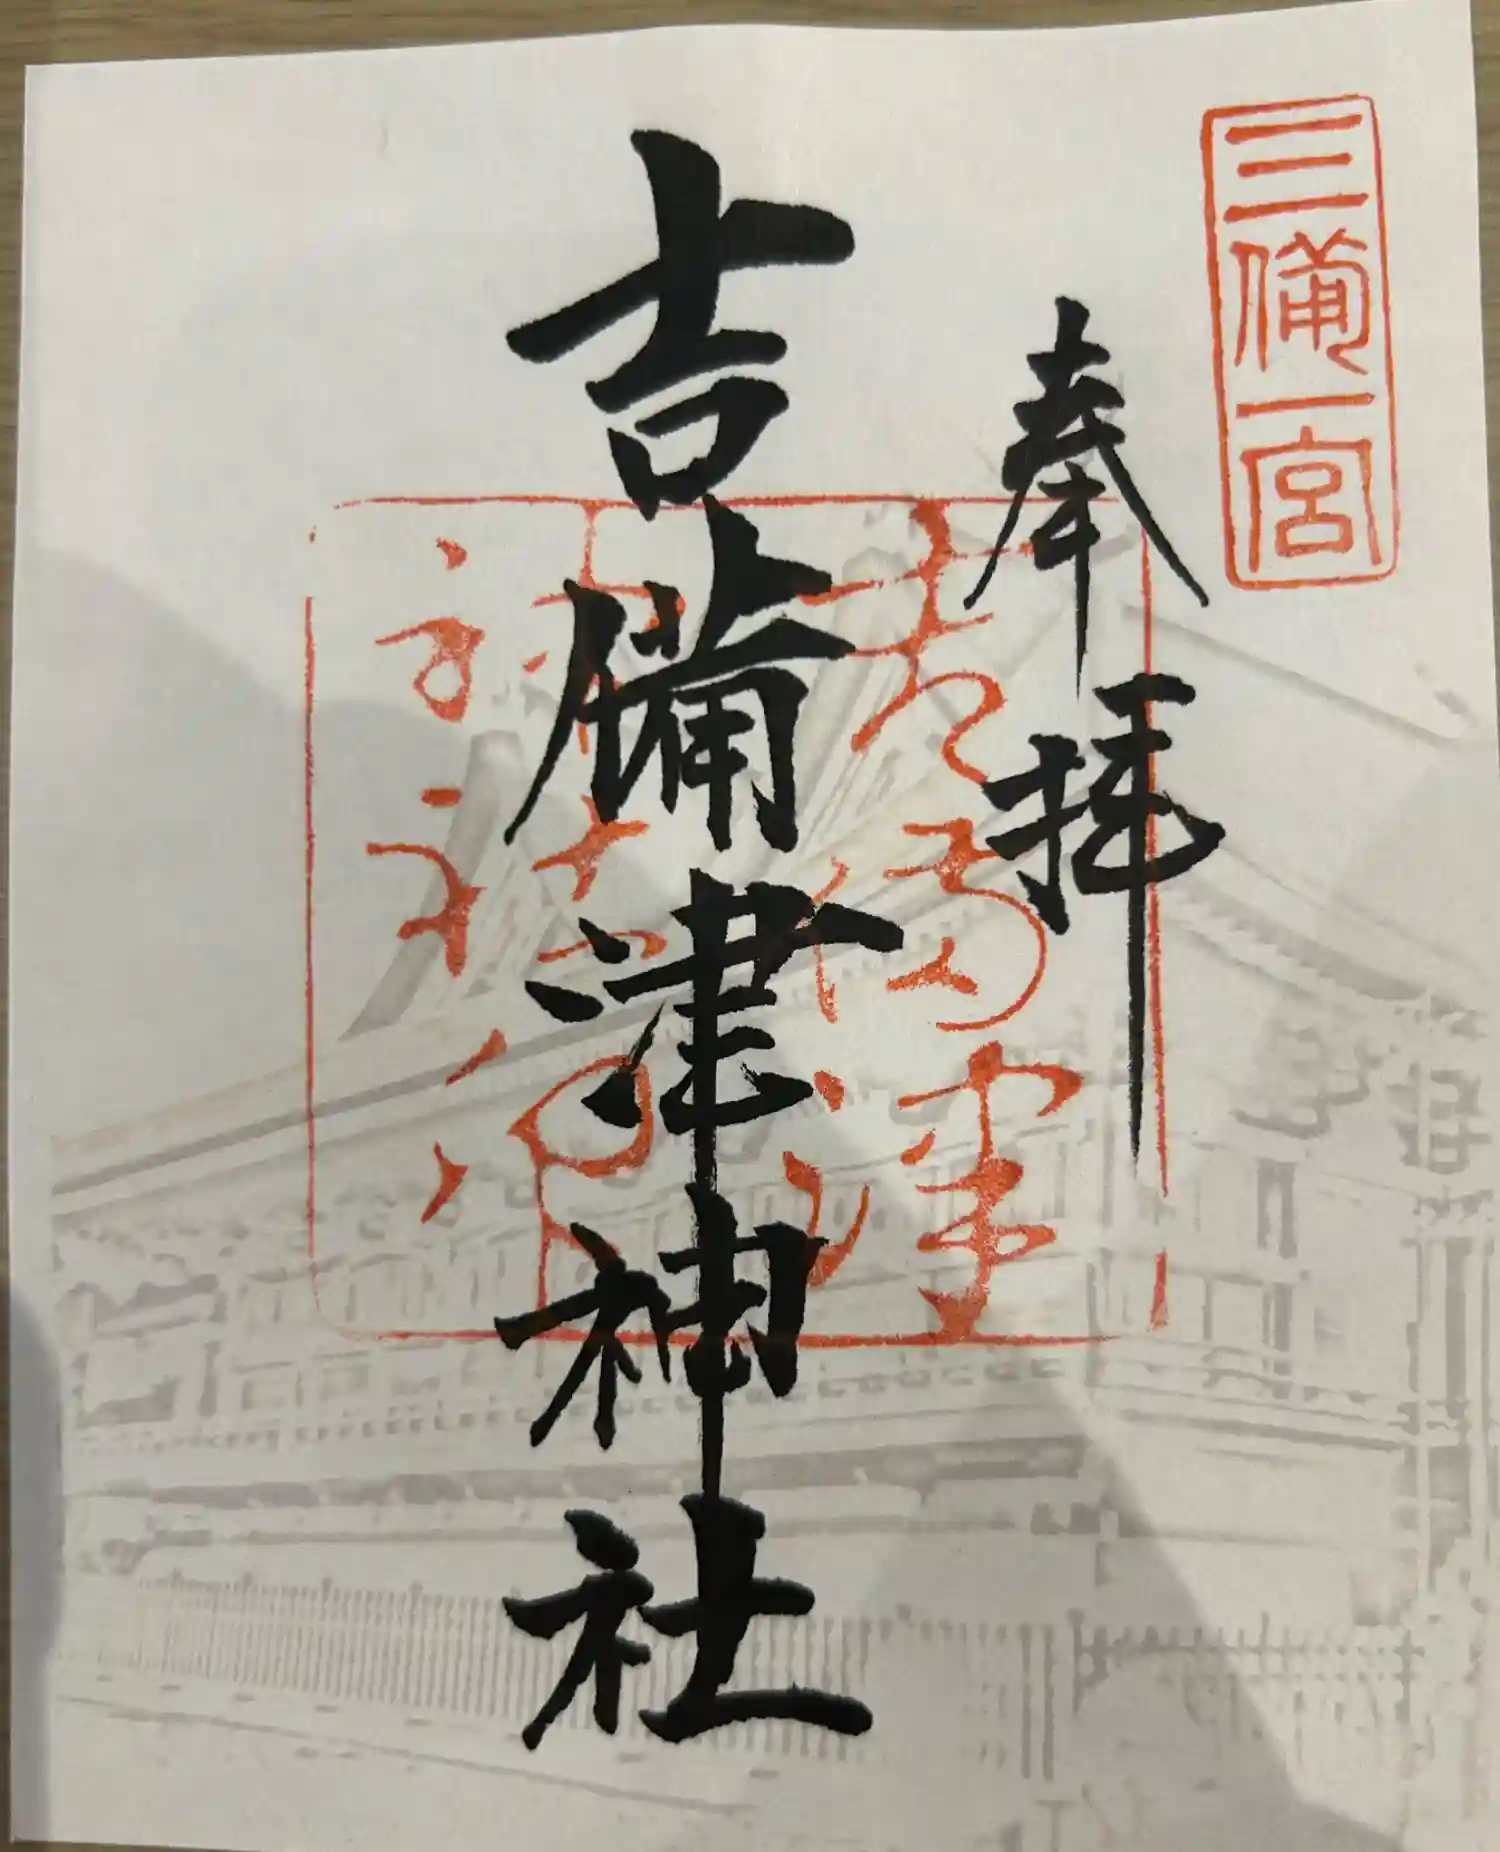 三備一宮
奉拝
吉備津神社